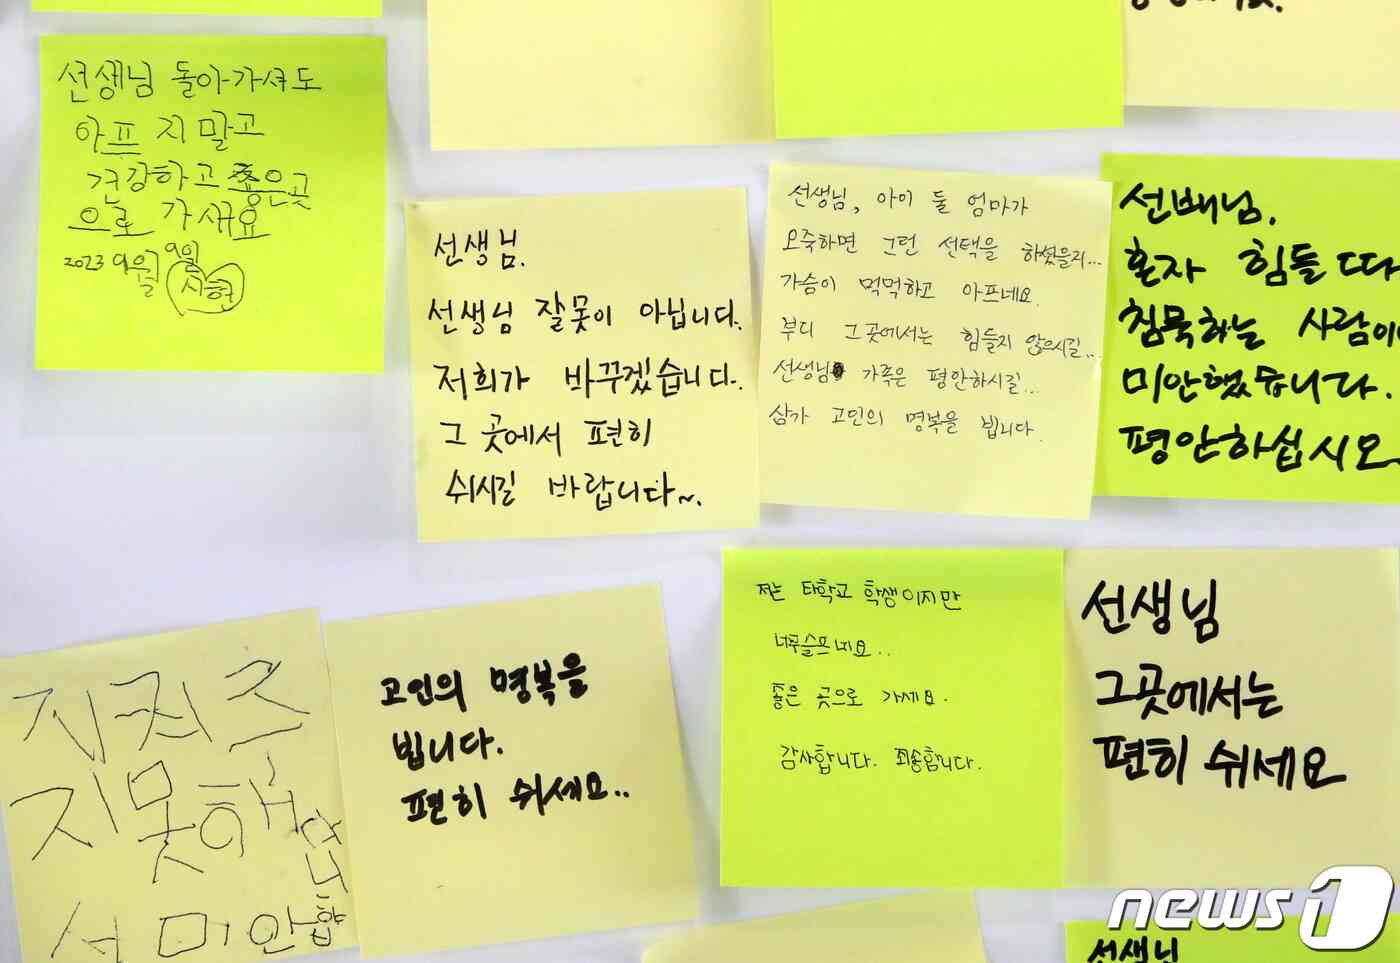 선생님 돌아가셔도
아프지 말고
건강하고 좋은곳
으로 가새요
2023 9월 9일
시현
선생님.
선생님 잘못이 아닙니다.
저희가 바꾸겠습니다.
그 곳에서 편히
쉬시길 바랍니다~.
선생님, 아이 둘 엄마가
오죽하면 그런 선택을 하셨을지...
가슴이 먹먹하고 아프네요.
부디 그곳에서는 힘들지 않으시길...
선생님 가족은 평안하시길...
삼가 고인의 명복을 빕니다.
선배님.
혼자 힘들
침묵하는 사람이
미안했습니다.
평안하십시오.
지켜주
지못해
서 미안합
니다
고인의 명복을
빕니다.
편히 쉬세요..
저는 타학교 학생이지만
너무슬프네요..
좋은 곳으로 가세요.
감사합니다. 죄송합니다.
선생님
그곳에서는
편히 쉬세요
news1
선생님